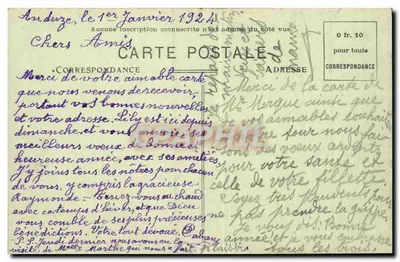 Anduze, le 1er Janvier 1924
Aucune inscription manuscrite n'est admise du côté vue
0 fr. 10
pour tous
CORRESPONDANCE
Chers Amis
CARTE POSTALE
CORRESPONDANCE
ADRESSE
Merci de votre aimable carte
que nous venons de recevoir,
portant vos bonnes nouvelles
et votre adresse. Lily est ici depuis
dimanche et vous
meilleurs voeux de Bonne et
heureuse année, avec ses amitiés.
J'y joins tous les nôtres pour chacun
de vous, y compris la gracieuse
Raymonde. Tenez-vous au chaud
avec ce temps d'hiver, et que Dieu
vous comble de ses plus précieuses
bénédictions. Votre tout dévoué
P.S. Jeudi dernier nous avons eu la
visite de Melle Marthe qui nous a fait plaisir
Merci de la carte de
que
vos aimables souhaits
tour nous fai
sons des voeux ardents
pour votre santé et
celle de votre fillette
Soyez très prudents
ne pas prendre la grippe
vous Bonne
année et vous embrasse
tous les trois.